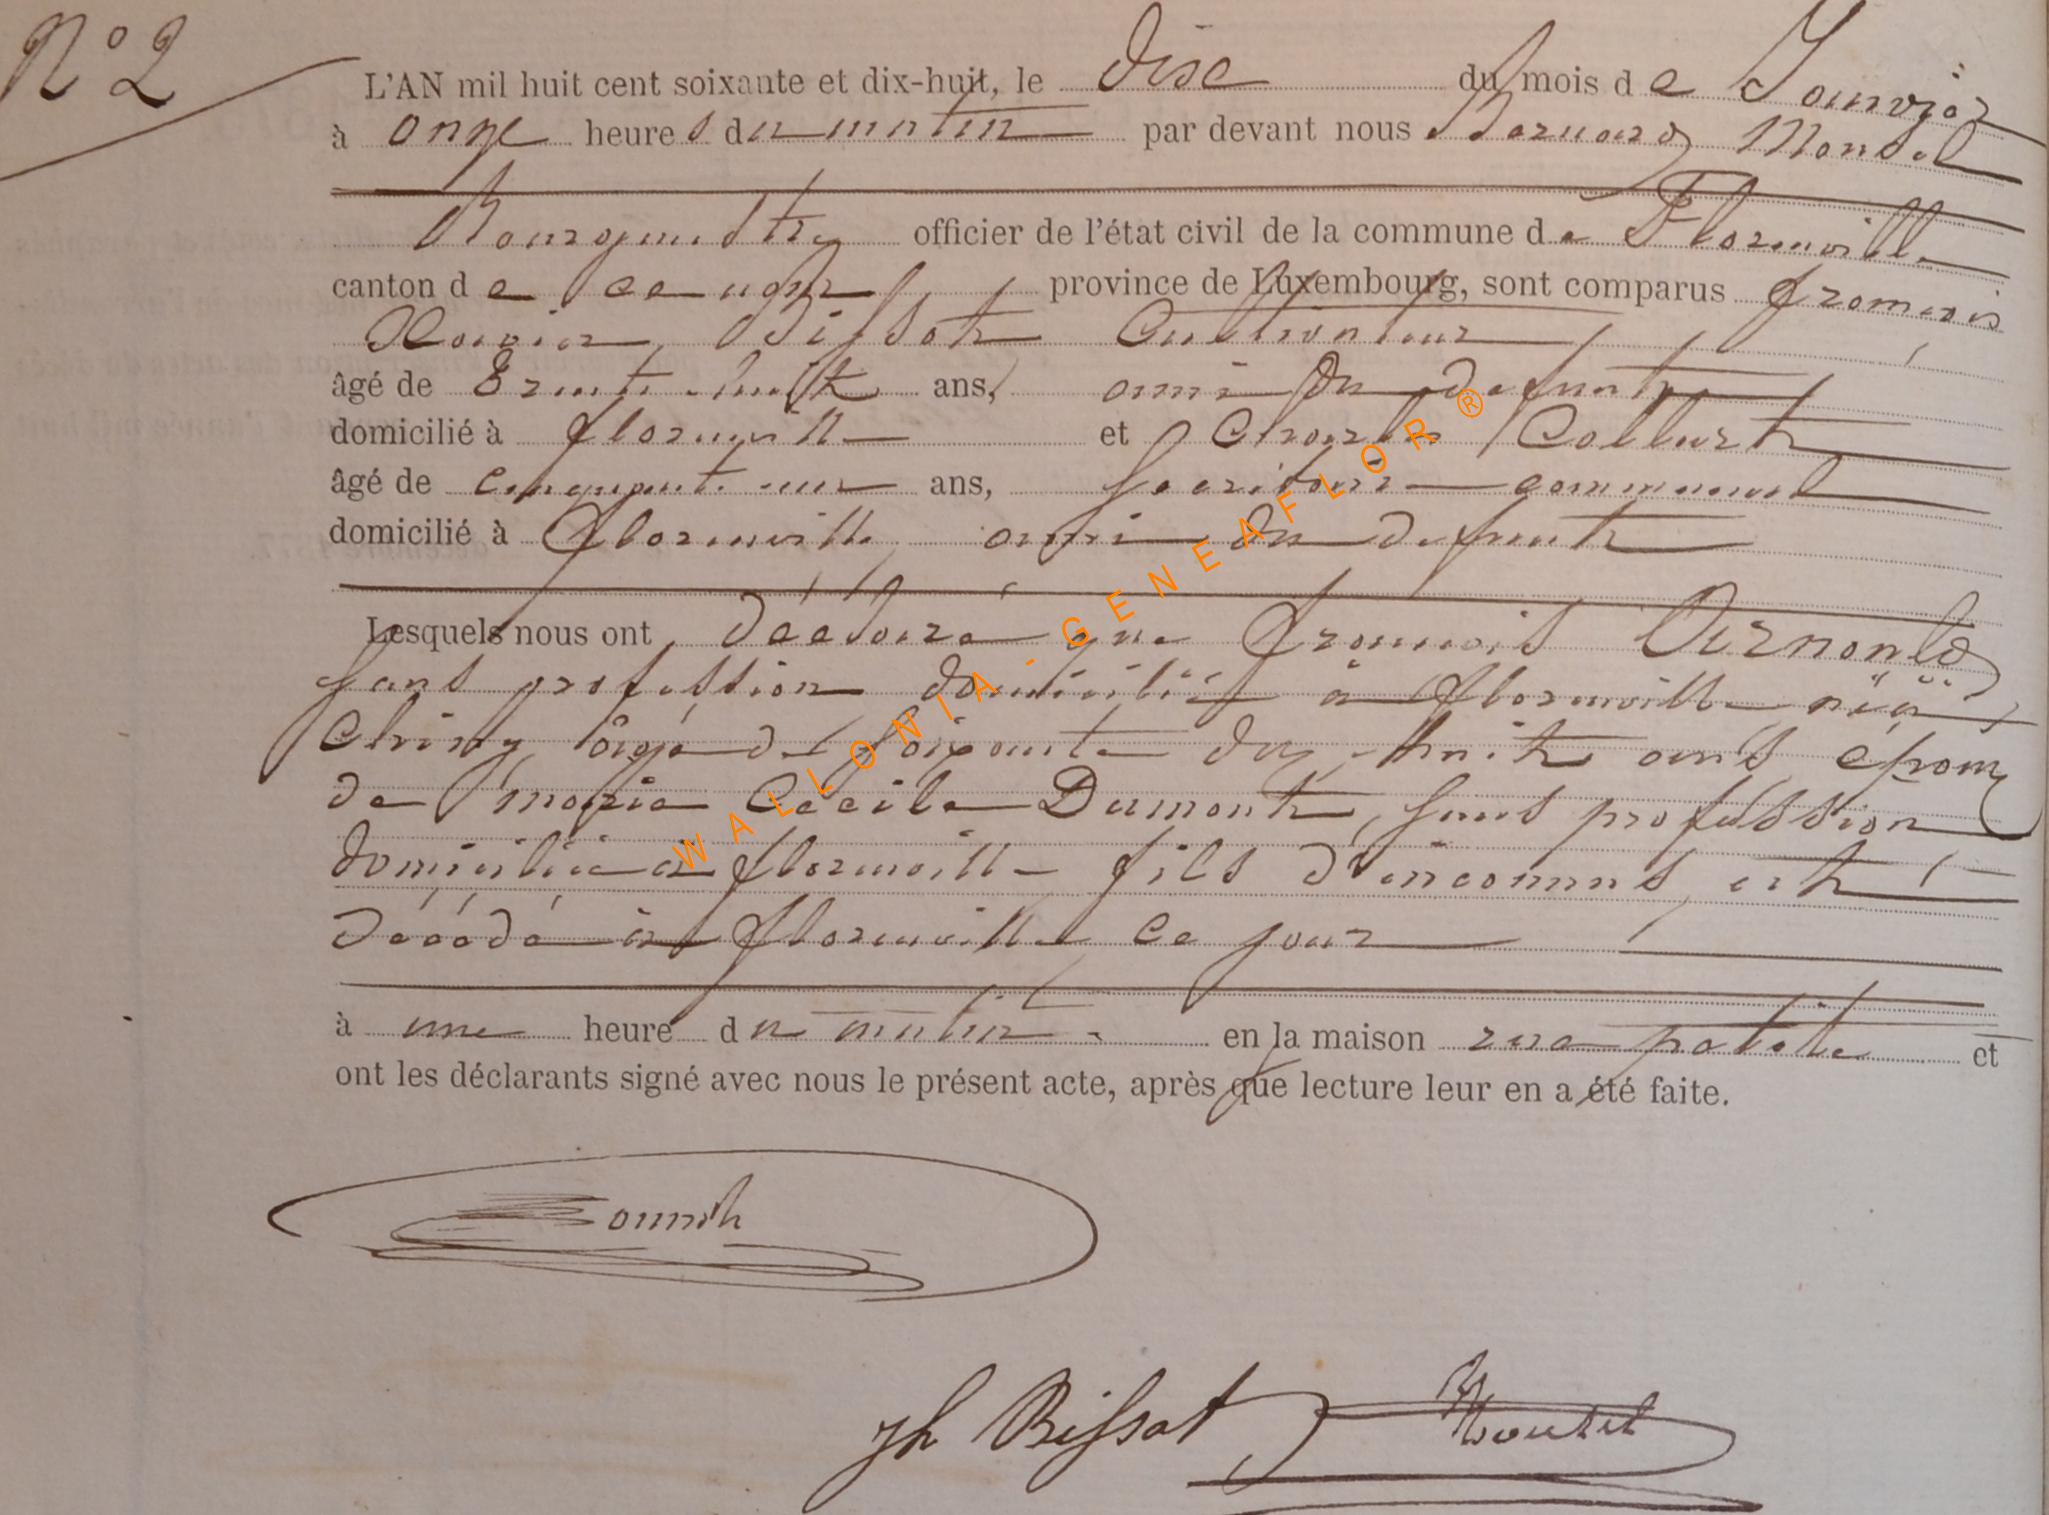 N° 2
L'AN mil huit cent soixante et dix-huit, le dix du mois de Janvier
à onze heures du matin par devant nous Bernard
Bourgmestre officier de l'état civil de la commune de Florenville
canton de province de Luxembourg, sont comparus françois
Xavier Bissot Cultivateur
âgé de trente-huit ans, ami du défunt
domicilié à florenville et Charles Collart
âgé de cinquante-un ans, secrétaire communal
domicilié à florenville ami du défunt
Lesquels nous ont déclaré que françois Arnould
sans profession domicilié à florenville né à
Chiny âgé de soixante dix huit ans époux
de marie Cécile Dumont, sans profession
domiciliée à florenville fils d'inconnus, est
décédé à florenville ce jour
à une heure du matin en la maison rue petite et
ont les déclarants signé avec nous le présent acte, après que lecture leur en a été faite.
Jh Bissot
WALLONIA-GENEAFLOR®